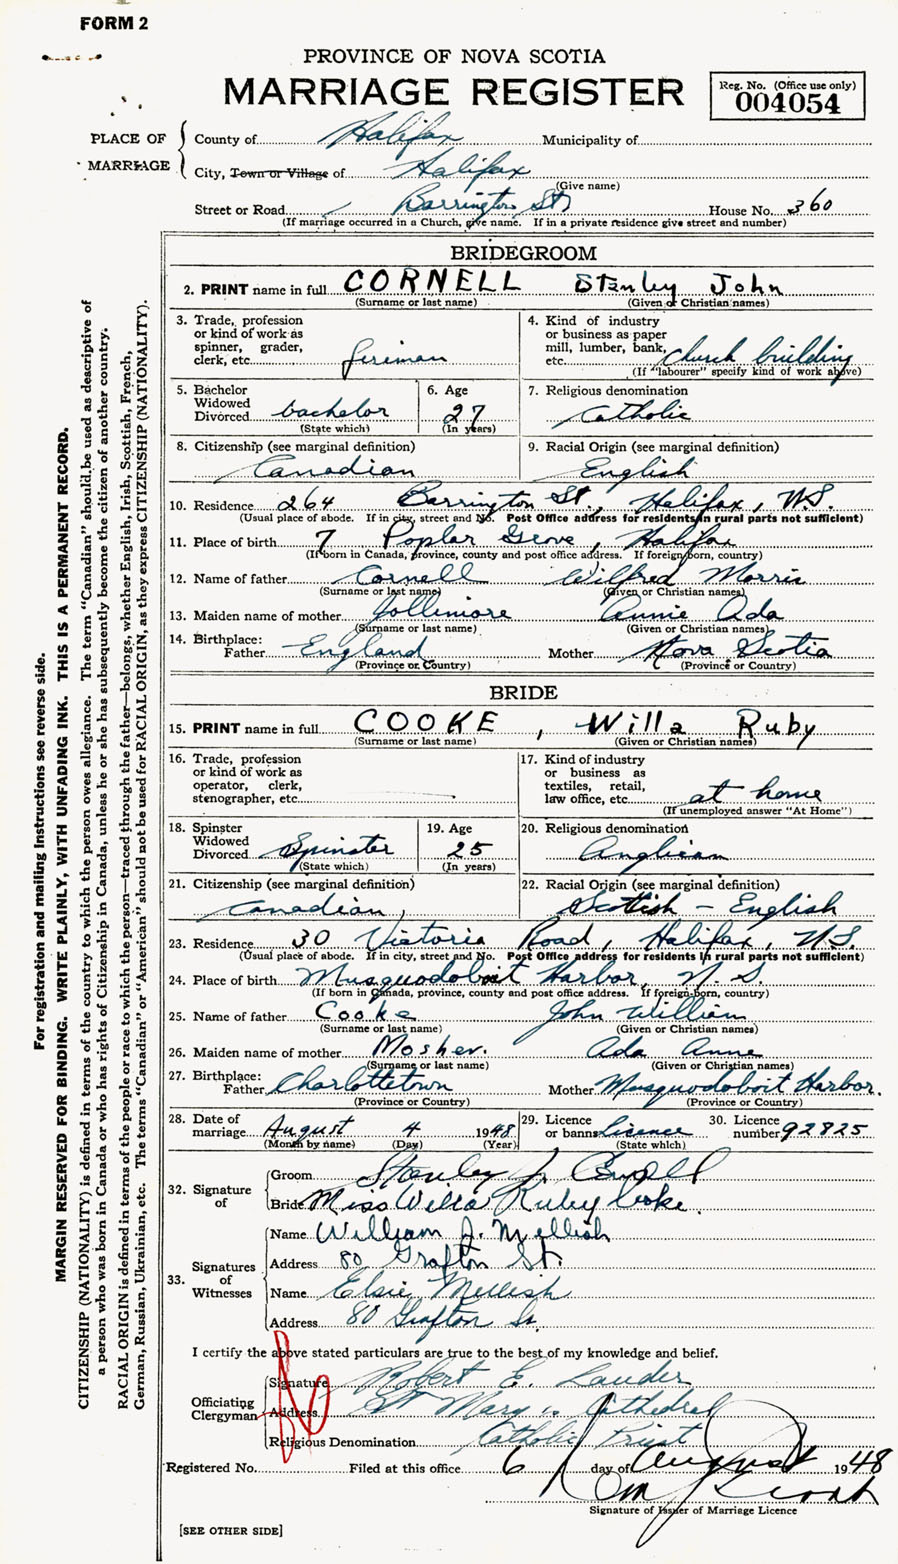 FORM 2
PROVINCE OF NOVA SCOTIA
MARRIAGE REGISTER
Reg. No. (Office use only)
004054
PLACE OF MARRIAGE
County of Halifax Municipality of
City, Town or Village of Halifax
(Give name)
Street or Road Barrington St. House No. 360
(If marriage occurred in a Church, give name. If in a private residence give street and number)
BRIDEGROOM
2. PRINT name in full CORNELL Stanley John
(Surname or last name) (Given or Christian names)
3. Trade, profession or kind of work as spinner, grader, clerk, etc. fireman
4. Kind of industry or business as paper mill, lumber, bank, etc. church building
(If "labourer" specify kind of work above)
5. Bachelor Widowed Divorced bachelor
(State which)
6. Age 27
(In years)
7. Religious denomination Catholic
8. Citizenship (see marginal definition) Canadian
9. Racial Origin (see marginal definition) English
10. Residence 264 Barrington St., Halifax, N.S.
(Usual place of abode. If in city, street and No. Post Office address for residents in rural parts not sufficient)
11. Place of birth 7 Poplar Grove, Halifax
(If born in Canada, province, county and post office address. If foreign born, country)
12. Name of father Cornell Wilfred Morris
(Surname or last name) (Given or Christian names)
13. Maiden name of mother Jollimore Annie Ada
(Surname or last name) (Given or Christian names)
14. Birthplace: Father England Mother Nova Scotia
(Province or Country) (Province or Country)
BRIDE
15. PRINT name in full COOKE, Willa Ruby
(Surname or last name) (Given or Christian names)
16. Trade, profession or kind of work as operator, clerk, stenographer, etc.
17. Kind of industry or business as textiles, retail, law office, etc. at home
(If unemployed answer "At Home")
18. Spinster Widowed Divorced Spinster
(State which)
19. Age 25
(In years)
20. Religious denomination Anglican
21. Citizenship (see marginal definition) Canadian,
22. Racial Origin (see marginal definition) Scottish - English
23. Residence 30 Victoria Road, Halifax, N.S.
(Usual place of abode. If in city, street and No. Post Office address for residents in rural parts not sufficient)
24. Place of birth Musquodoboit Harbor, N.S.
(If born in Canada, province, county and post office address. If foreign-born, country)
25. Name of father Cooke John William
(Surname or last name) (Given or Christian names)
26. Maiden name of mother Mosher. Ada Anne
(Surname or last name) (Given or Christian names)
27. Birthplace: Father Charlottetown Mother Musquodoboit Harbor.
(Province or Country) (Province or Country)
28. Date of marriage August 4 1948
(Month by name) (Day) (Year)
29. Licence or banns licence
(State which)
30. Licence number 92825
32. Signature of
Groom Stanley J. Cornell
Bride Miss Willa Ruby Cooke.
33. Signatures of Witnesses
Name William J. Mellish
Address 80 Grafton St.
Name Elsie Mellish
Address 80 Grafton St.
I certify the above stated particulars are true to the best of my knowledge and belief.
Officiating Clergyman
Signature Robert E. Lauder
Address St Mary's Cathedral
Religious Denomination Catholic Priest
Registered No. Filed at this office 6 day of August 1948
Signature of Issuer of Marriage Licence
[SEE OTHER SIDE]
For registration and mailing instructions see reverse side.
MARGIN RESERVED FOR BINDING. WRITE PLAINLY, WITH UNFADING INK. THIS IS A PERMANENT RECORD.
CITIZENSHIP (NATIONALITY) is defined in terms of the country to which the person owes allegiance. The term "Canadian" should be used as descriptive of
a person who was born in Canada or who has rights of Citizenship in Canada, unless he or she has subsequently become the citizen of another country.
RACIAL ORIGIN is defined in terms of the people or race to which the person—traced through the father—belongs, whether English, Irish, Scottish, French,
German, Russian, Ukrainian, etc. The terms "Canadian" or "American" should not be used for RACIAL ORIGIN, as they express CITIZENSHIP (NATIONALITY).